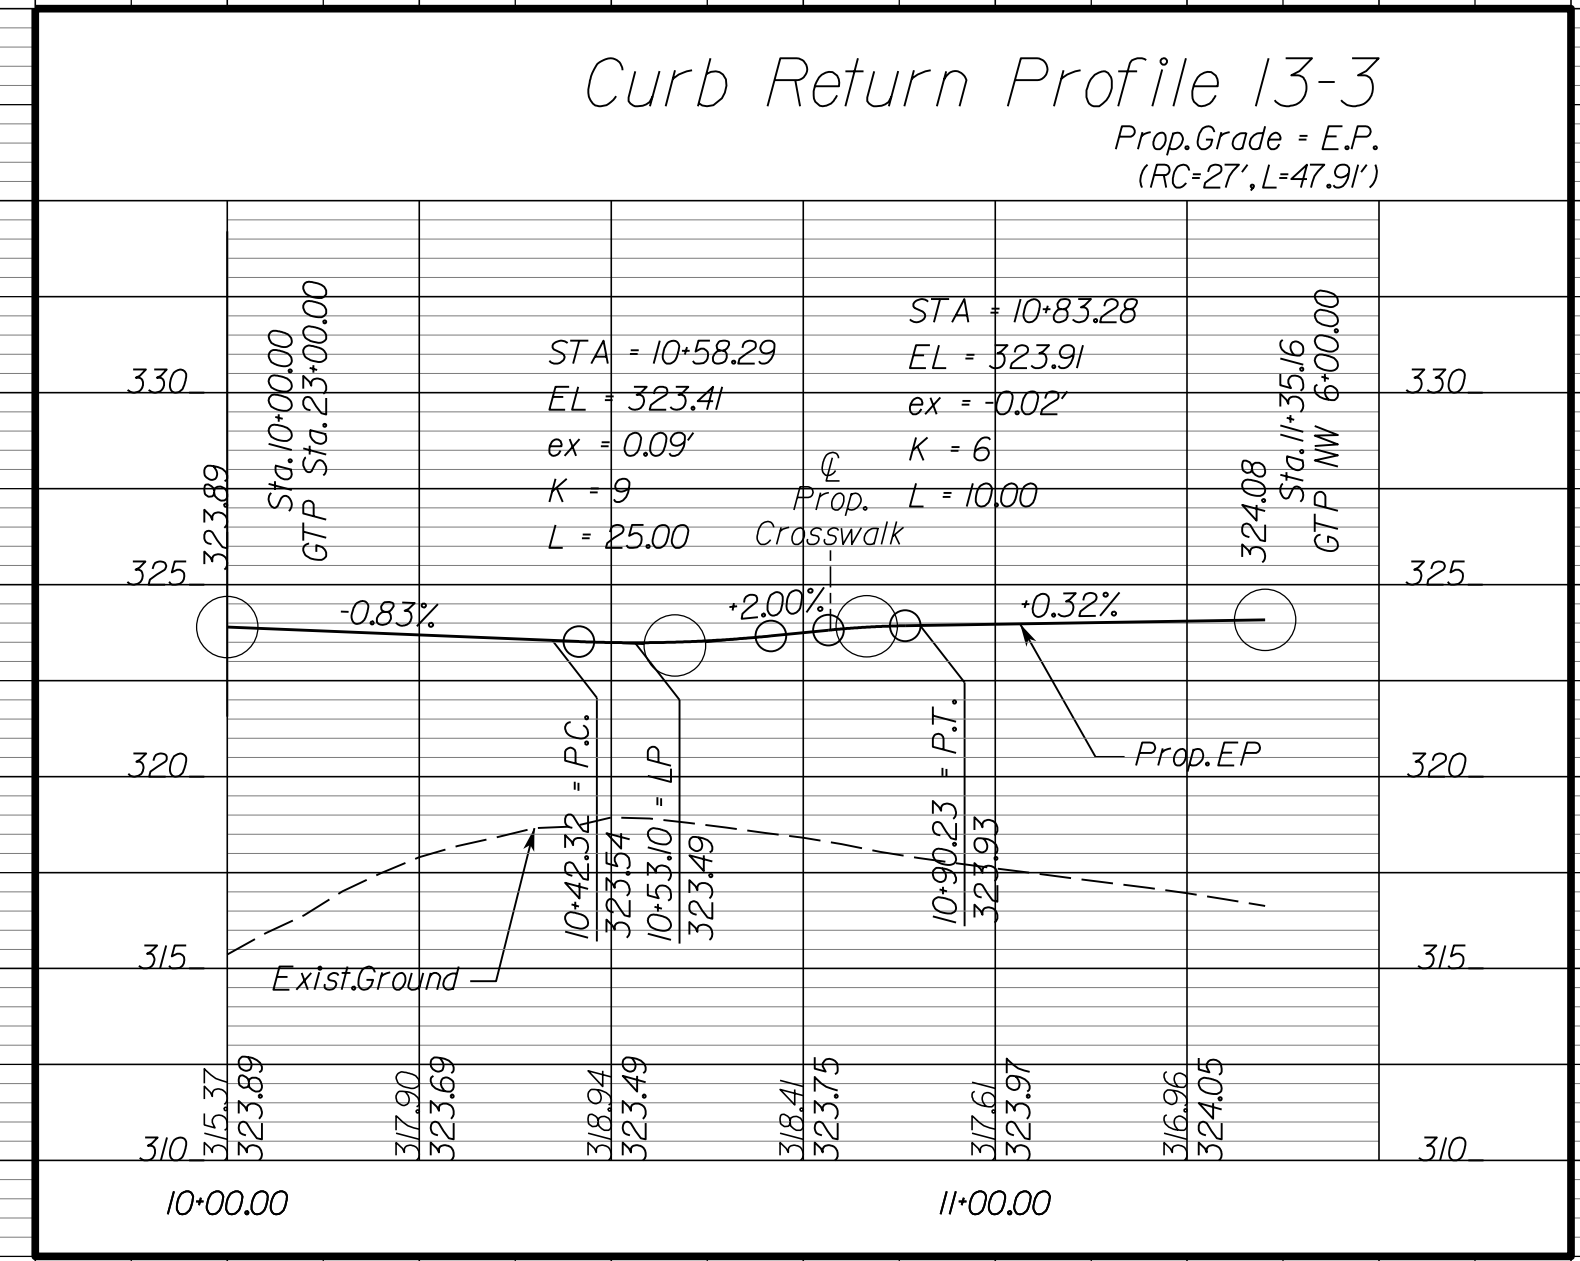 Curb Return Profile 13-3
Prop. Grade = E.P.
(RC=27', L=47.91')
323.89
Sta. 10+00.00
GTP Sta. 23+00.00
STA = 10+58.29
EL = 323.41
ex = 0.09'
K = 9
L = 25.00
STA = 10+83.28
EL = 323.91
ex = -0.02'
K = 6
L = 10.00
℄
Prop.
Crosswalk
324.08
Sta. 11+35.16
GTP NW 6+00.00
330
330
325
325
-0.83%
+2.00%
+0.32%
10+42.32 = P.C.
323.54
10+53.10 = LP
323.49
10+90.23 = P.T.
323.93
Prop. EP
320
320
Exist. Ground
315
315
315.37
323.89
317.90
323.69
318.94
323.49
318.41
323.75
317.61
323.97
316.96
324.05
310
310
10+00.00
11+00.00